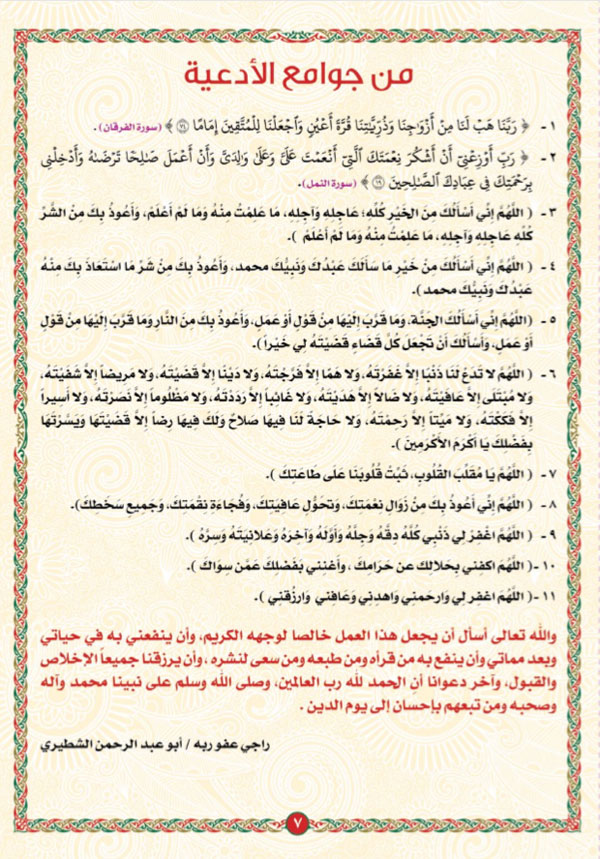 من جوامع الأدعية
١ - ﴿ رَبَّنَا هَبْ لَنَا مِنْ أَزْوَٰجِنَا وَذُرِّيَّٰتِنَا قُرَّةَ أَعْيُنٍ وَٱجْعَلْنَا لِلْمُتَّقِينَ إِمَامًا ﴾ (سورة الفرقان).
٢ - ﴿ رَبِّ أَوْزِعْنِىٓ أَنْ أَشْكُرَ نِعْمَتَكَ ٱلَّتِىٓ أَنْعَمْتَ عَلَىَّ وَعَلَىٰ وَٰلِدَىَّ وَأَنْ أَعْمَلَ صَٰلِحًا تَرْضَىٰهُ وَأَدْخِلْنِى
بِرَحْمَتِكَ فِى عِبَادِكَ ٱلصَّٰلِحِينَ ﴿١٩﴾ ﴾ (سورة النمل).
٣ - ( اللَّهُمَّ إِنِّي أَسْأَلُكَ مِنَ الْخَيْرِ كُلِّهِ؛ عَاجِلِهِ وَآجِلِهِ، مَا عَلِمْتُ مِنْهُ وَمَا لَمْ أَعْلَمْ، وَأَعُوذُ بِكَ مِنَ الشَّرِّ
كُلِّهِ عَاجِلِهِ وَآجِلِهِ، مَا عَلِمْتُ مِنْهُ وَمَا لَمْ أَعْلَمْ ).
٤ - ( اللَّهُمَّ إِنِّي أَسْأَلُكَ مِنْ خَيْرِ مَا سَأَلَكَ عَبْدُكَ وَنَبِيُّكَ محمد، وَأَعُوذُ بِكَ مِنْ شَرِّ مَا اسْتَعَاذَ بِكَ مِنْهُ
عَبْدُكَ وَنَبِيُّكَ محمد ).
٥ - ( اللَّهُمَّ إِنِّي أَسْأَلُكَ الْجَنَّةَ، وَمَا قَرَّبَ إِلَيْهَا مِنْ قَوْلٍ أَوْ عَمَلٍ، وَأَعُوذُ بِكَ مِنَ النَّارِ وَمَا قَرَّبَ إِلَيْهَا مِنْ قَوْلٍ
أَوْ عَمَلٍ، وَأَسْأَلُكَ أَنْ تَجْعَلَ كُلَّ قَضَاءٍ قَضَيْتَهُ لِي خَيْراً ).
٦ - ( اللَّهُمَّ لا تَدَعْ لَنَا ذَنْبًا إِلاَّ غَفَرْتَهُ، وَلا هَمًّا إِلاَّ فَرَّجْتَهُ، وَلا دَيْنًا إِلاَّ قَضَيْتَهُ، وَلا مَرِيضاً إِلاَّ شَفَيْتَهُ،
وَلا مُبْتَلَى إِلاَّ عَافَيْتَهُ، وَلا ضَالاًّ إِلاَّ هَدَيْتَهُ، وَلا غَائِباً إِلاَّ رَدَدْتَهُ، وَلا مَظْلُوماً إِلاَّ نَصَرْتَهُ، وَلا أَسِيراً
إِلاَّ فَكَكْتَهُ، وَلا مَيْتاً إِلاَّ رَحِمْتَهُ، وَلا حَاجَةً لَنَا فِيهَا صَلاحٌ وَلَكَ فِيهَا رِضاً إِلاَّ قَضَيْتَهَا وَيَسَّرْتَهَا
بِفَضْلِكَ يَا أَكْرَمَ الأَكْرَمِينَ ).
٧ - ( اللَّهُمَّ يَا مُقَلِّبَ الْقُلُوبِ، ثَبِّتْ قُلُوبَنَا عَلَى طَاعَتِكَ ).
٨ - ( اللَّهُمَّ إِنِّي أَعُوذُ بِكَ مِنْ زَوَالِ نِعْمَتِكَ، وَتَحَوُّلِ عَافِيَتِكَ، وَفُجَاءَةِ نِقْمَتِكَ، وَجَمِيعِ سَخَطِكَ).
٩ - ( اللَّهُمَّ اغْفِرْ لِي ذَنْبِي كُلَّهُ دِقَّهُ وَجِلَّهُ وَأَوَّلَهُ وَآخِرَهُ وَعَلانِيَتَهُ وَسِرَّهُ ).
١٠ - ( اللَّهُمَّ اكْفِنِي بِحَلالِكَ عن حَرَامِكَ ، وأَغْنِنِي بِفَضْلِكَ عَمَّن سِوَاكَ ).
١١ - ( اللَّهُمَّ اغْفِر لِي وَارحَمنِي وَاهدِنِي وَعَافِنِي وَارزُقنِي ).
والله تعالى أسأل أن يجعل هذا العمل خالصا لوجهه الكريم، وأن ينفعني به في حياتي
وبعد مماتي وأن ينفع به من قرأه ومن طبعه ومن سعى لنشره ، وأن يرزقنا جميعاً الإخلاص
والقبول، وآخر دعوانا أنِ الحمد لله رب العالمين، وصلى الله وسلم على نبينا محمد وآله
وصحبه ومن تبعهم بإحسان إلى يوم الدين .
راجي عفو ربه / أبو عبد الرحمن الشطيري
٧